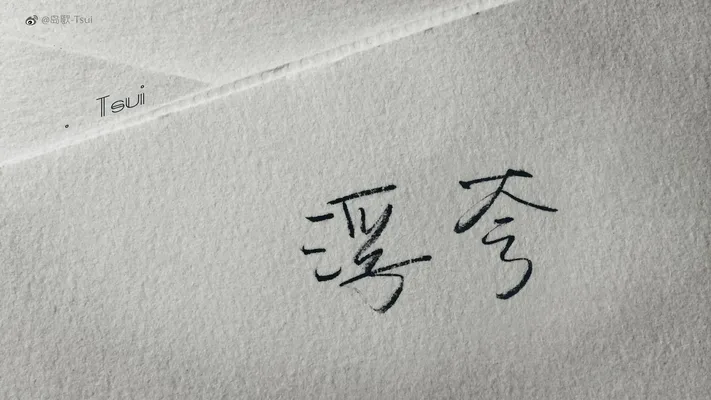 @岛歌-Tsui
Tsui
浮夸